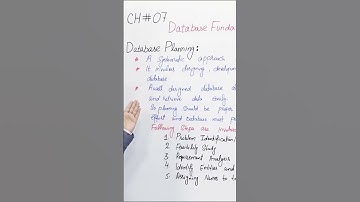 CH#07
Database Funda
Database Planning:
A systematic approach
It involves designing, developing
database
A well designed database
and retrieve data easily
So planning should be proper
effort and database must
Following Steps are involved
1 Problem Identification/
2 Feasibility Study
3 Requirement Analysis
4 Identify Entities and
5 Assigning Names to